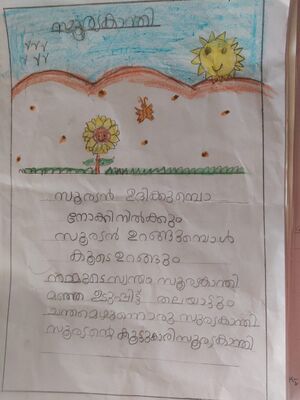 സൂര്യകാന്തി
സൂര്യൻ ഉദിക്കുമ്പൊ
നോക്കി നിൽക്കും
സൂര്യൻ ഉറങ്ങുമ്പോൾ
കൂടെ ഉറങ്ങും
നമ്മുടെ സ്വന്തം സൂര്യകാന്തി
മഞ്ഞ ഉടുപ്പിട്ട് തലയാട്ടും
ചന്തമെഴുന്നൊരു സൂര്യകാന്തി
സൂര്യന്റെ കൂട്ടുകാരി സൂര്യകാന്തി